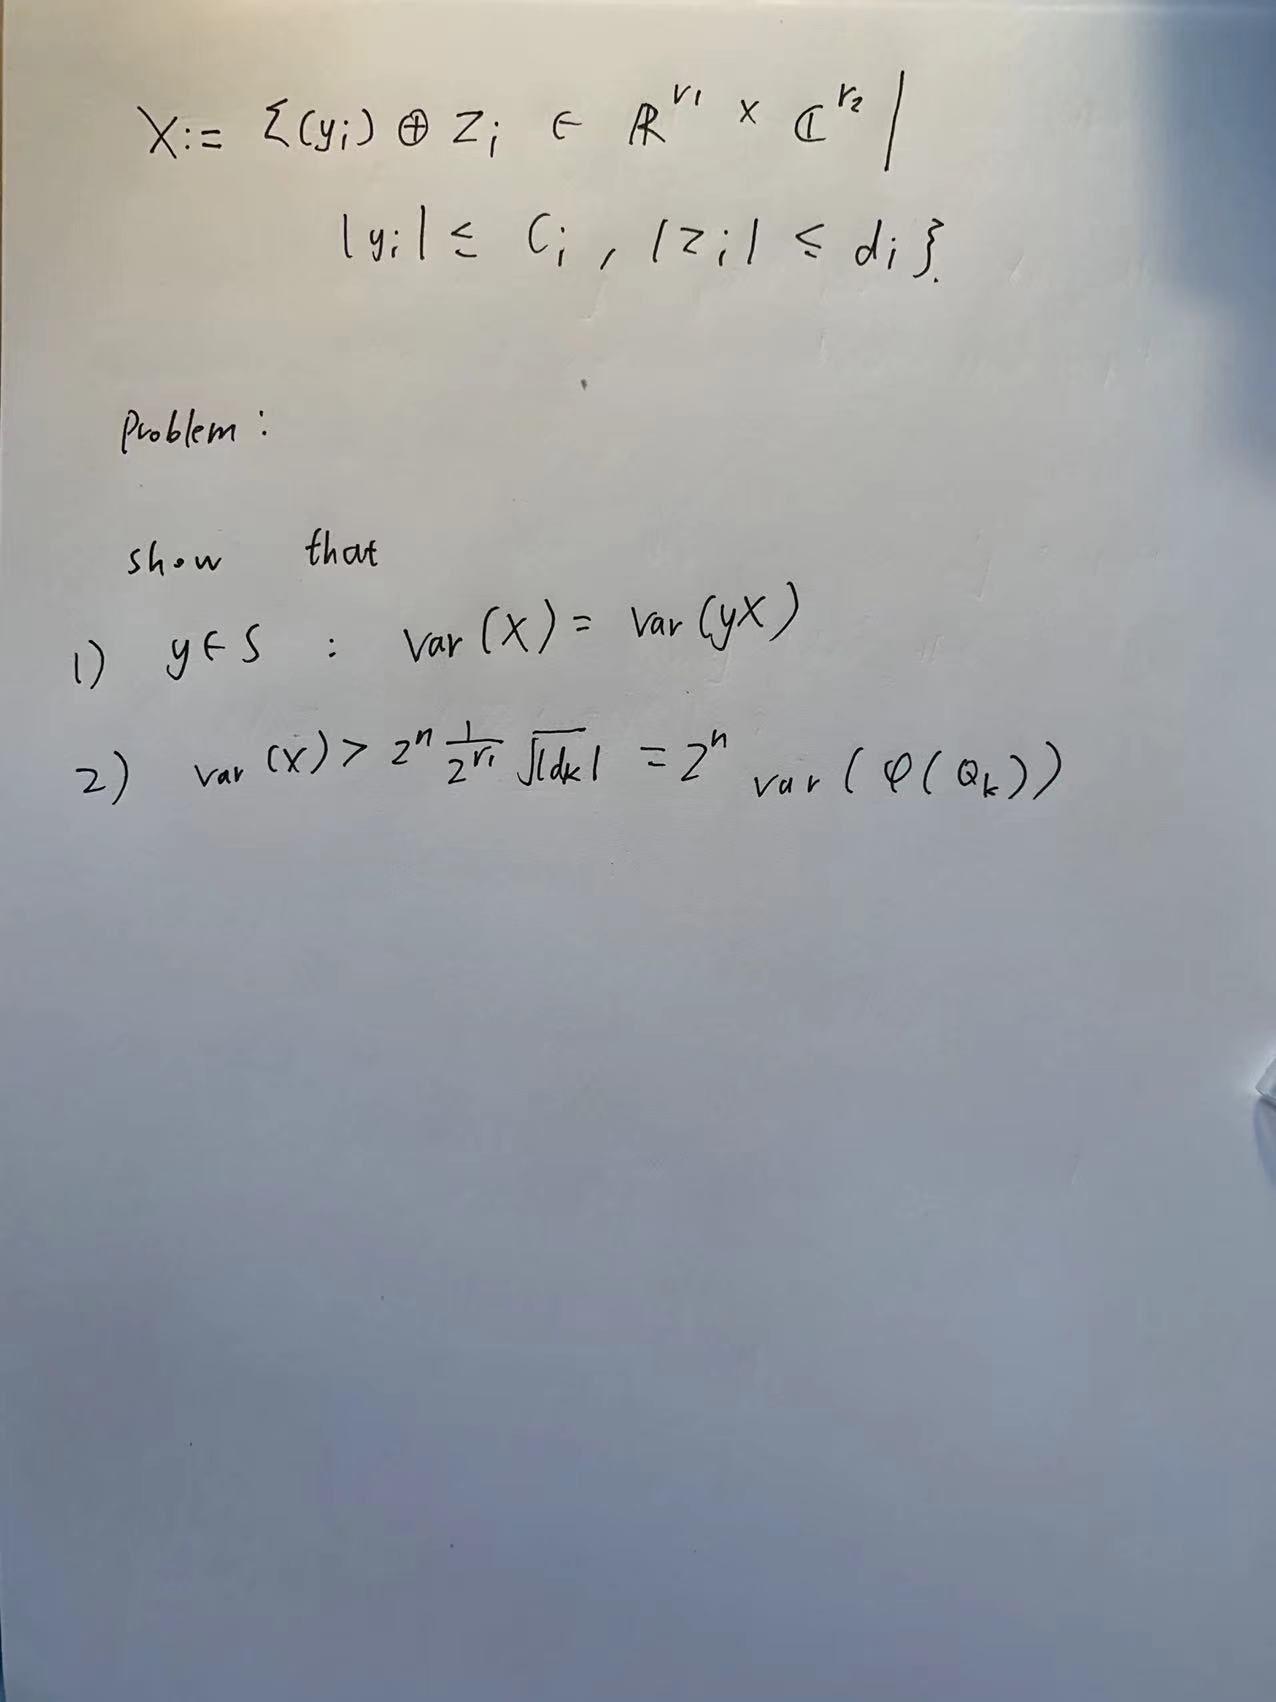 X := {(yi) ⊕ zi ∈ ℝ^r1 × ℂ^r2 |
|yi| ≤ Ci , |zi| ≤ di}.
Problem :
show that
1) y ∈ S : Var (X) = Var (yX)
2) var (X) > 2^n 1/2^r1 √|dk| = 2^n var ( φ ( Qk ))